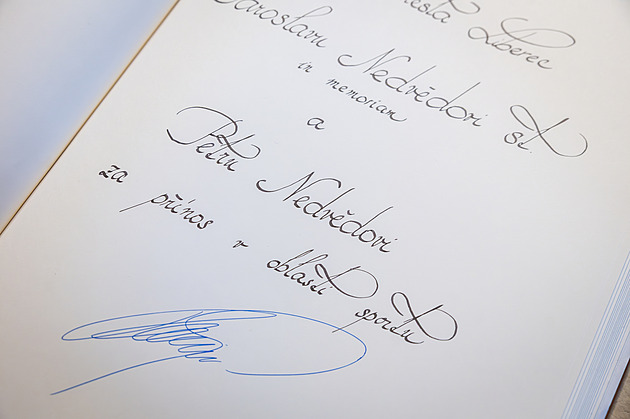 města Liberec
Jaroslavu Nedvědovi st.
in memoriam
a
Petru Nedvědovi
za přínos v oblasti sportu